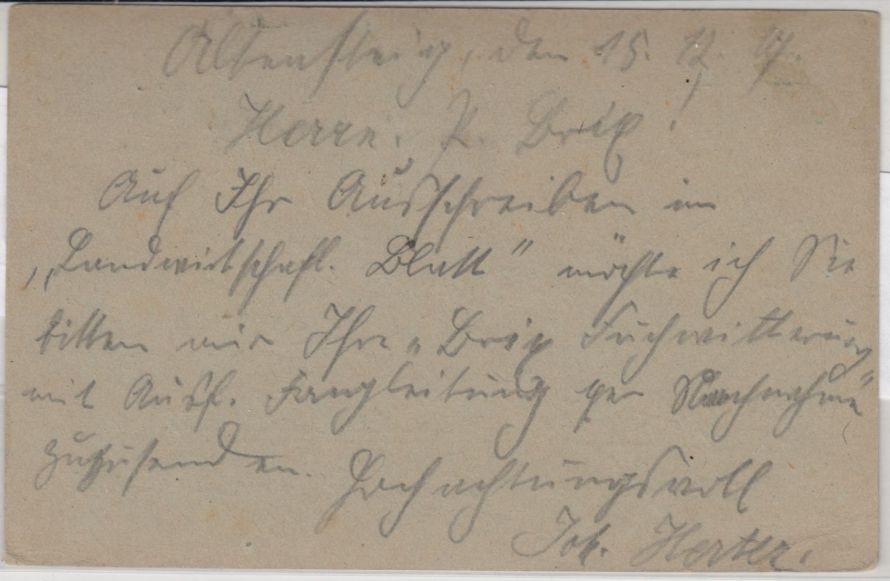 Altensteig, den 15. 12. 17.
Herrn. P. Brix!
Auf Ihr Ausschreiben im
„Landwirtschaftl. Blatt" möchte ich Sie
bitten mir Ihre „Brix Fuchswitterung
mit Ausf. Fangleitung per Nachnahme"
zuzusenden. Hochachtungsvoll
Joh. Herter.